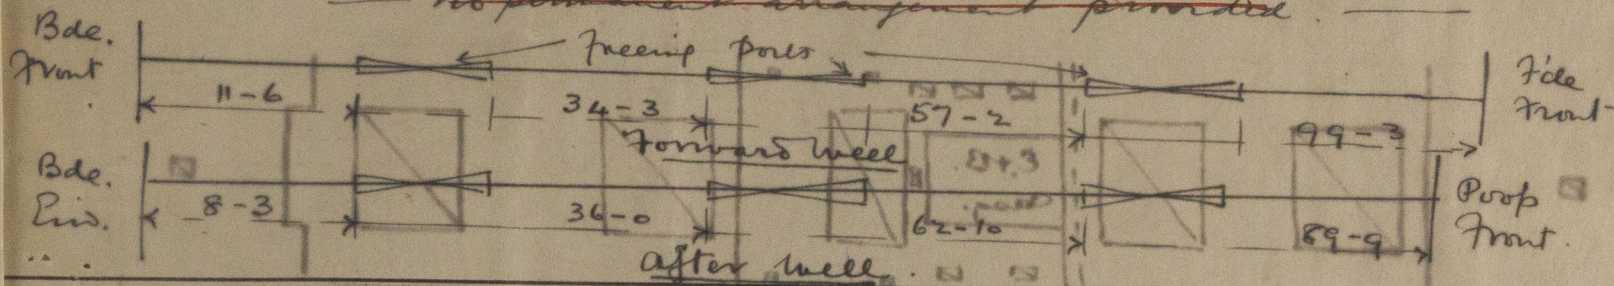 no permanent arrangement provided.
Bde. Front
Freeing Ports
F'cle Front
11-6 34-3 57-2 99-3
Forward Well
Bde. End.
8-3 36-0 62-10 89-9
Poop Front.
After Well.